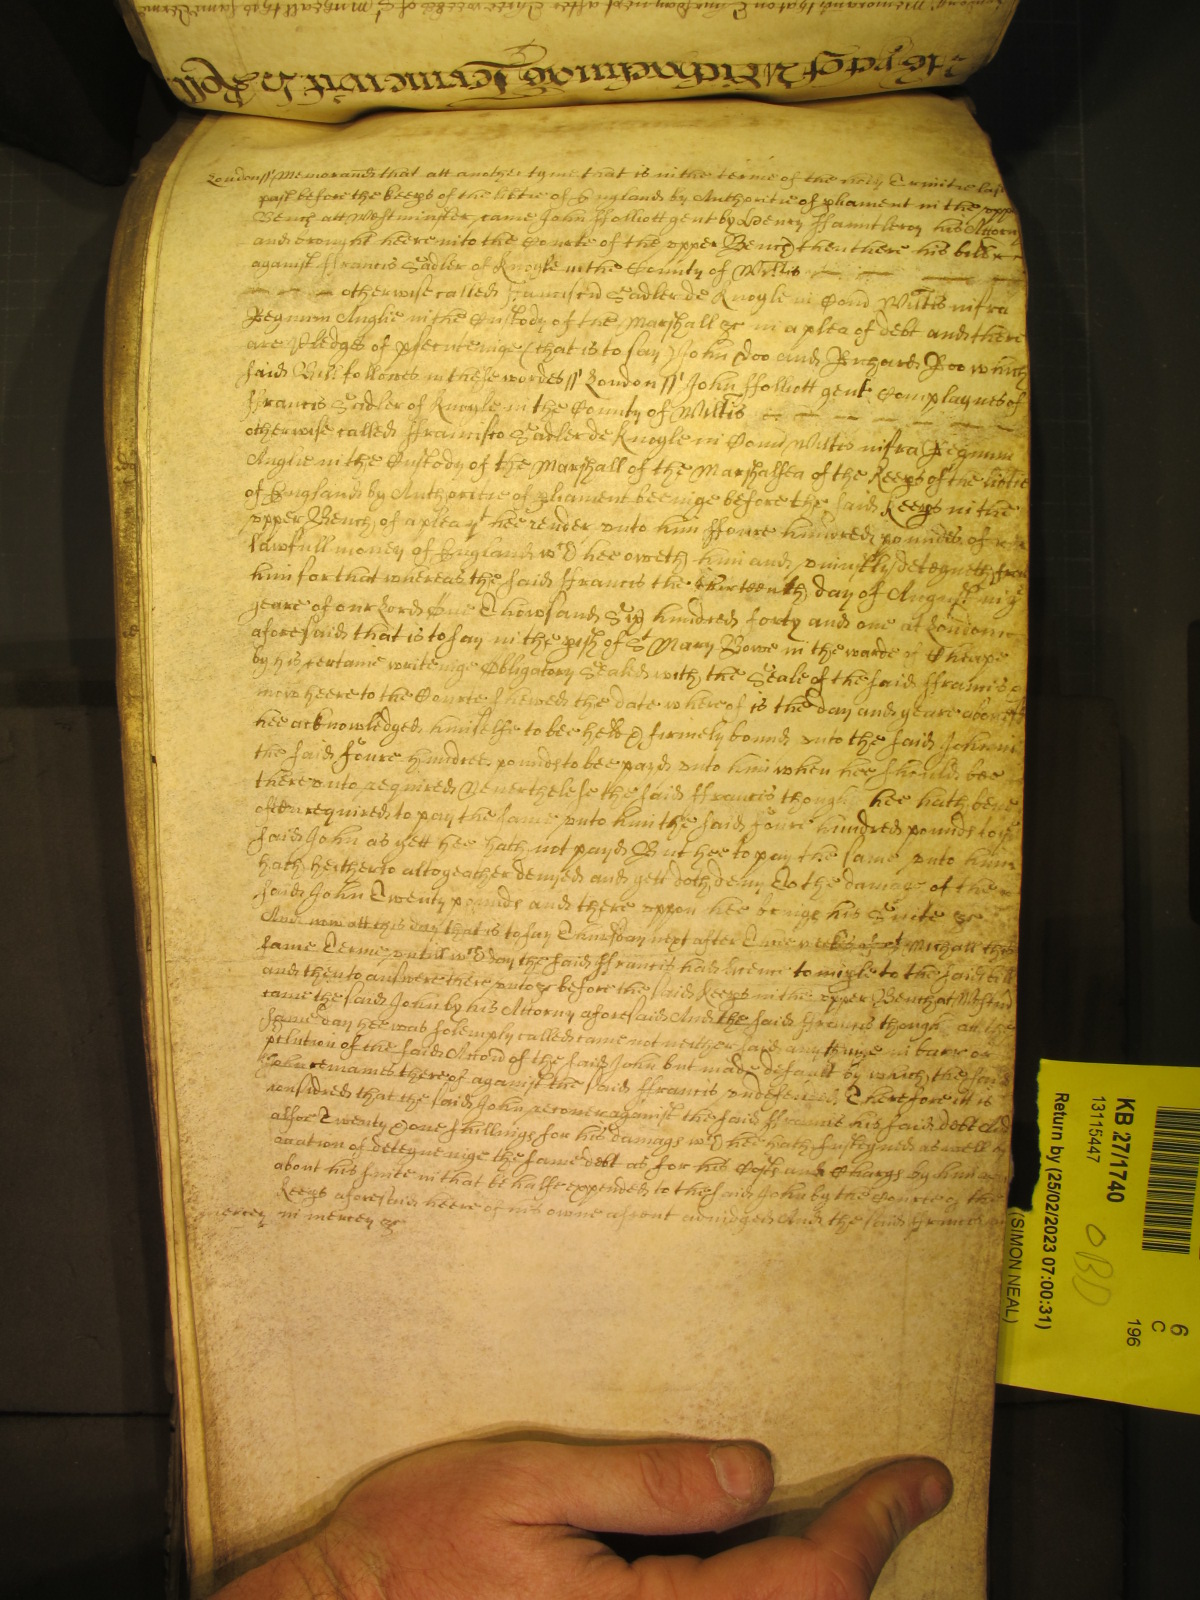 London ss Memorand that att another tyme that is in the terme of the holy Trinitie last
past before the keeps of the libtie of England by Authoritie of pliament in the upp
Bench att Westminster came John Ffolliott gent by Henry Ffauntleroy his Attorn
and brought heere into the Courte of the upper Bench then there his bill
against Ffrancis Sadler of Knoyle in the County of Wiltes
otherwise called Francisco Sadler de Knoyle in Com Wiltes infra
Regnum Anglie in the Custody of the Marshall &c in a plea of debt and there
are Pledges of psecuteinge (that is to say) John Doo and Richard Roo which
said Bill followes in these wordes ss London ss John Ffolliott gent Complaynes of
Ffrancis Sadler of Knoyle in the County of Wiltes
otherwise called Ffrancisco Sadler de Knoyle in Com Wiltes infra Regnum
Anglie in the Custody of the Marshall of the Marshalsea of the Keeps of the libtie
of England by Authoritie of pliament beeinge before the said Keeps in the
upper Bench of a plea yt hee render unto him ffoure hundred pounds of
lawfull money of England wch hee oweth him and uniustly deteyneth from
him for that whereas the said Ffrancis the thirteenth day of August in ye
yeare of our Lord One Thowsand Six hundred forty and one at London
aforesaid that is to say in the pish of St Mary Bowe in the warde of Cheape
by his certaine writeinge Obligatory Sealed with the Seale of the said Ffrancis
now heere to the Courte shewed the date whereof is the day and yeare
hee acknowledged himselfe to bee held & firmely bound unto the said John in
the said foure Hundred pounds to bee payd unto him when hee should bee
thereunto required Neverthelesse the said Ffrancis though hee hath bene
often required to pay the same unto him the said foure hundred pounds to ye
said John as yett hee hath not payd But hee to pay the same unto him
hath heitherto altogeather denyed and yett doth deny To the damage of the
said John Twenty pounds and there uppon hee bringe his Suite &c
And now att this day that is to say Thursday next after Three weekes of St Michaell this
same Terme untill wch day the said Ffrancis had licence to imple to the said bill
and then to answere there unto &c before the said Keeps in the upper Bench at Westm
came the said John by his Attorny aforesaid And the said Ffrancis though att the
same day hee was solemply called came not neither said any thinge in barr or
pclution of the said Accion of the said John but made default by which the said
John remaines thereof against the said Ffrancis undefended Therefore itt is
considred that the said John recover against the said Ffrancis his said debt And
alsoe Twenty & one shillings for his damags wch hee hath susteyned as well by
occation of deteyneinge the same debt as for his Costs and Chargs by him
about his suite in that behalfe expended to the said John by the Courte of the
Keeps aforesaid heere of his owne assent adiudged And the said Ffrancis
mercy in mercy &c
KB 27/1740
13115447
Return by (25/02/2023 07:00:31)
(SIMON NEAL)
6
C
196